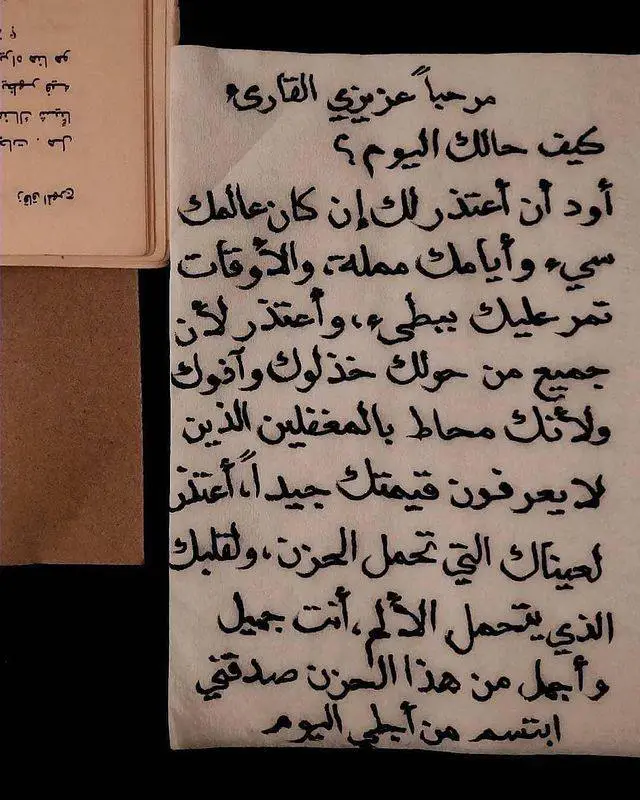 مرحباً عزيزي القارئ
كيف حالك اليوم؟
أود أن أعتذر لك إن كان عالمك
سيء وأيامك مملة، والأوقات
تمر عليك ببطىء، وأعتذر لأن
جميع من حولك خذلوك وآذوك
ولأنك محاط بالمغفلين الذين
لا يعرفون قيمتك جيداً، أعتذر
لعيناك التي تحمل الحزن، ولقلبك
الذي يتحمل الألم، أنت جميل
وأجمل من هذا الحزن صدقني
ابتسم من أجلي اليوم